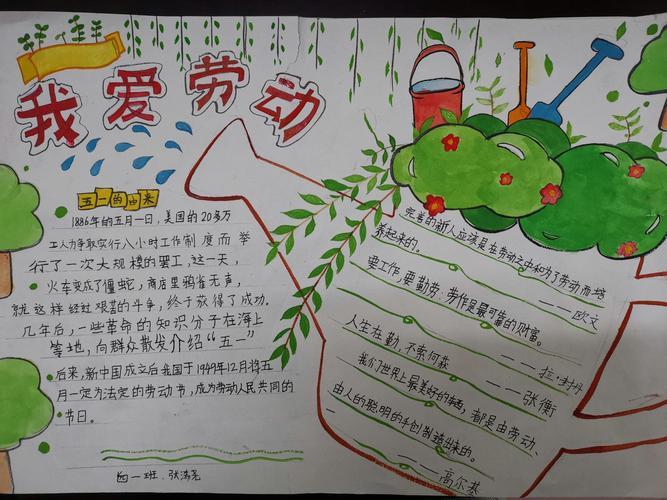 我爱劳动
五一的由来
1886年的五月一日，美国的20多万
工人为争取实行八小时工作制度而举
行了一次大规模的罢工，这一天，
火车变成了僵蛇，商店里鸦雀无声，
就这样经过艰苦的斗争，终于获得了成功。
几年后，一些革命的知识分子在海上
等地，向群众散发介绍“五一”
后来，新中国成立后我国于1949年12月将五
月一定为法定的劳动节，成为劳动人民共同的
节日。
四一班. 张满尧
完善的新人应该是在劳动之中和为了劳动而培
养起来的。
——欧文
要工作，要勤劳：劳作是最可靠的财富。
——拉·封丹
人生在勤，不索何获
——张衡
我们世界上最美好的东西，都是由劳动、
由人的聪明的手创制造出来的。
——高尔基